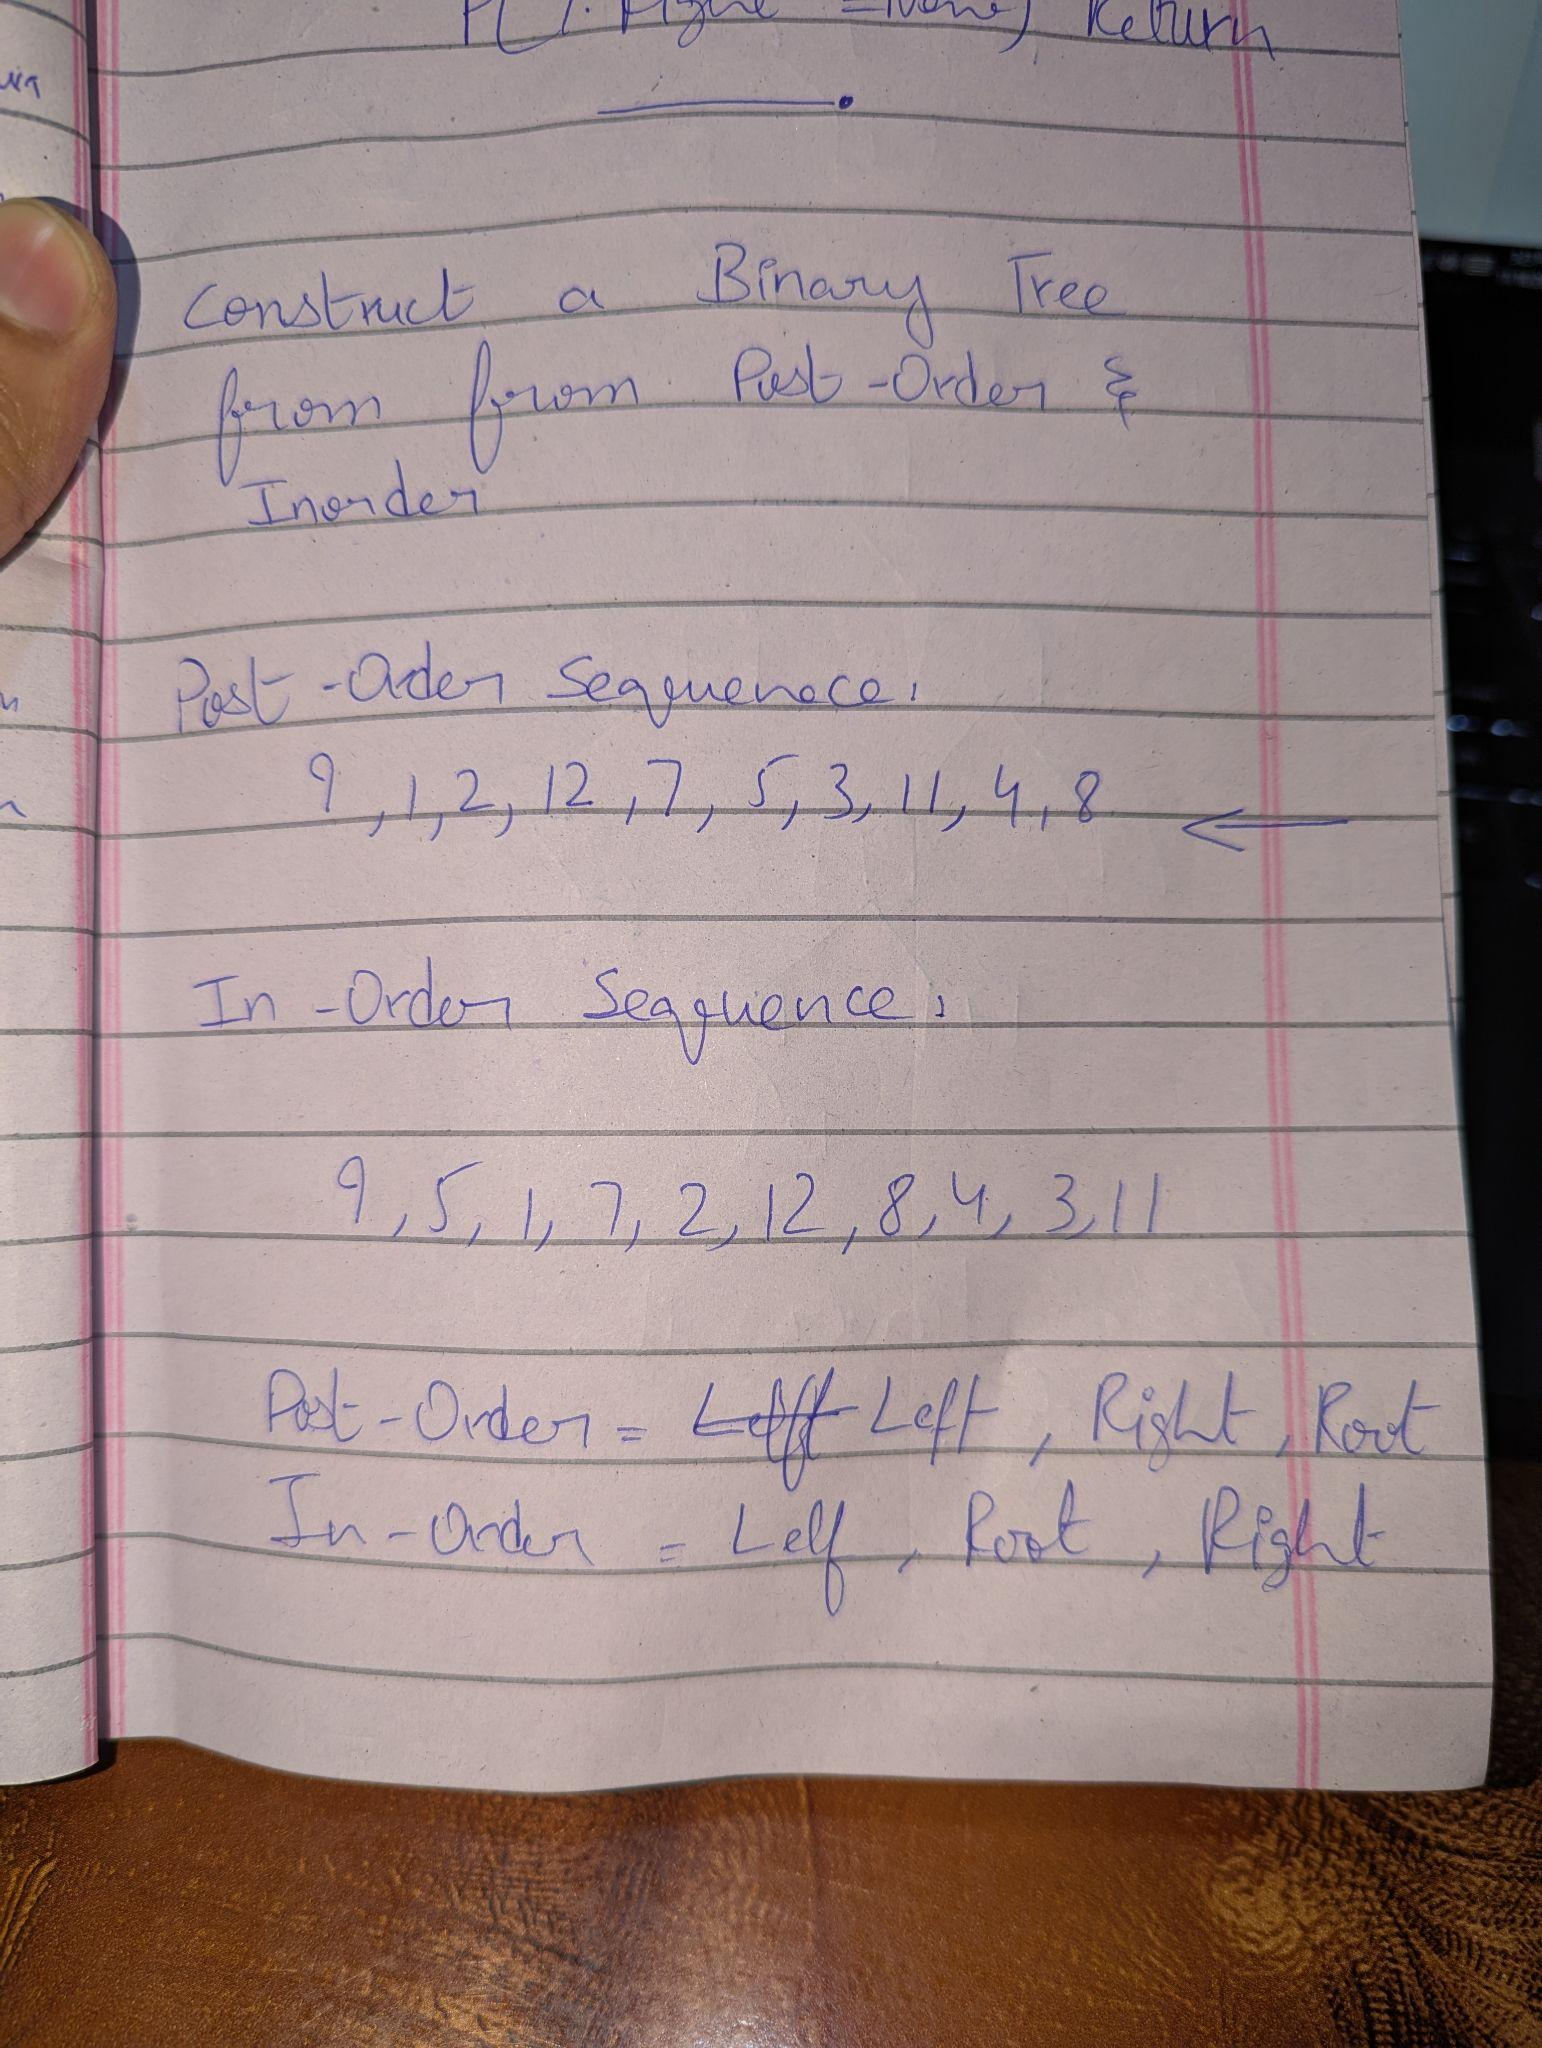 = None) Return
Construct a Binary Tree
from from Post-Order &
Inorder
Post-Order Sequenece:
9, 1, 2, 12, 7, 5, 3, 11, 4, 8 ←
In-Order Sequence:
9, 5, 1, 7, 2, 12, 8, 4, 3, 11
Post-Order = Left, Right, Root
In-Order = Lelf, Root, Right